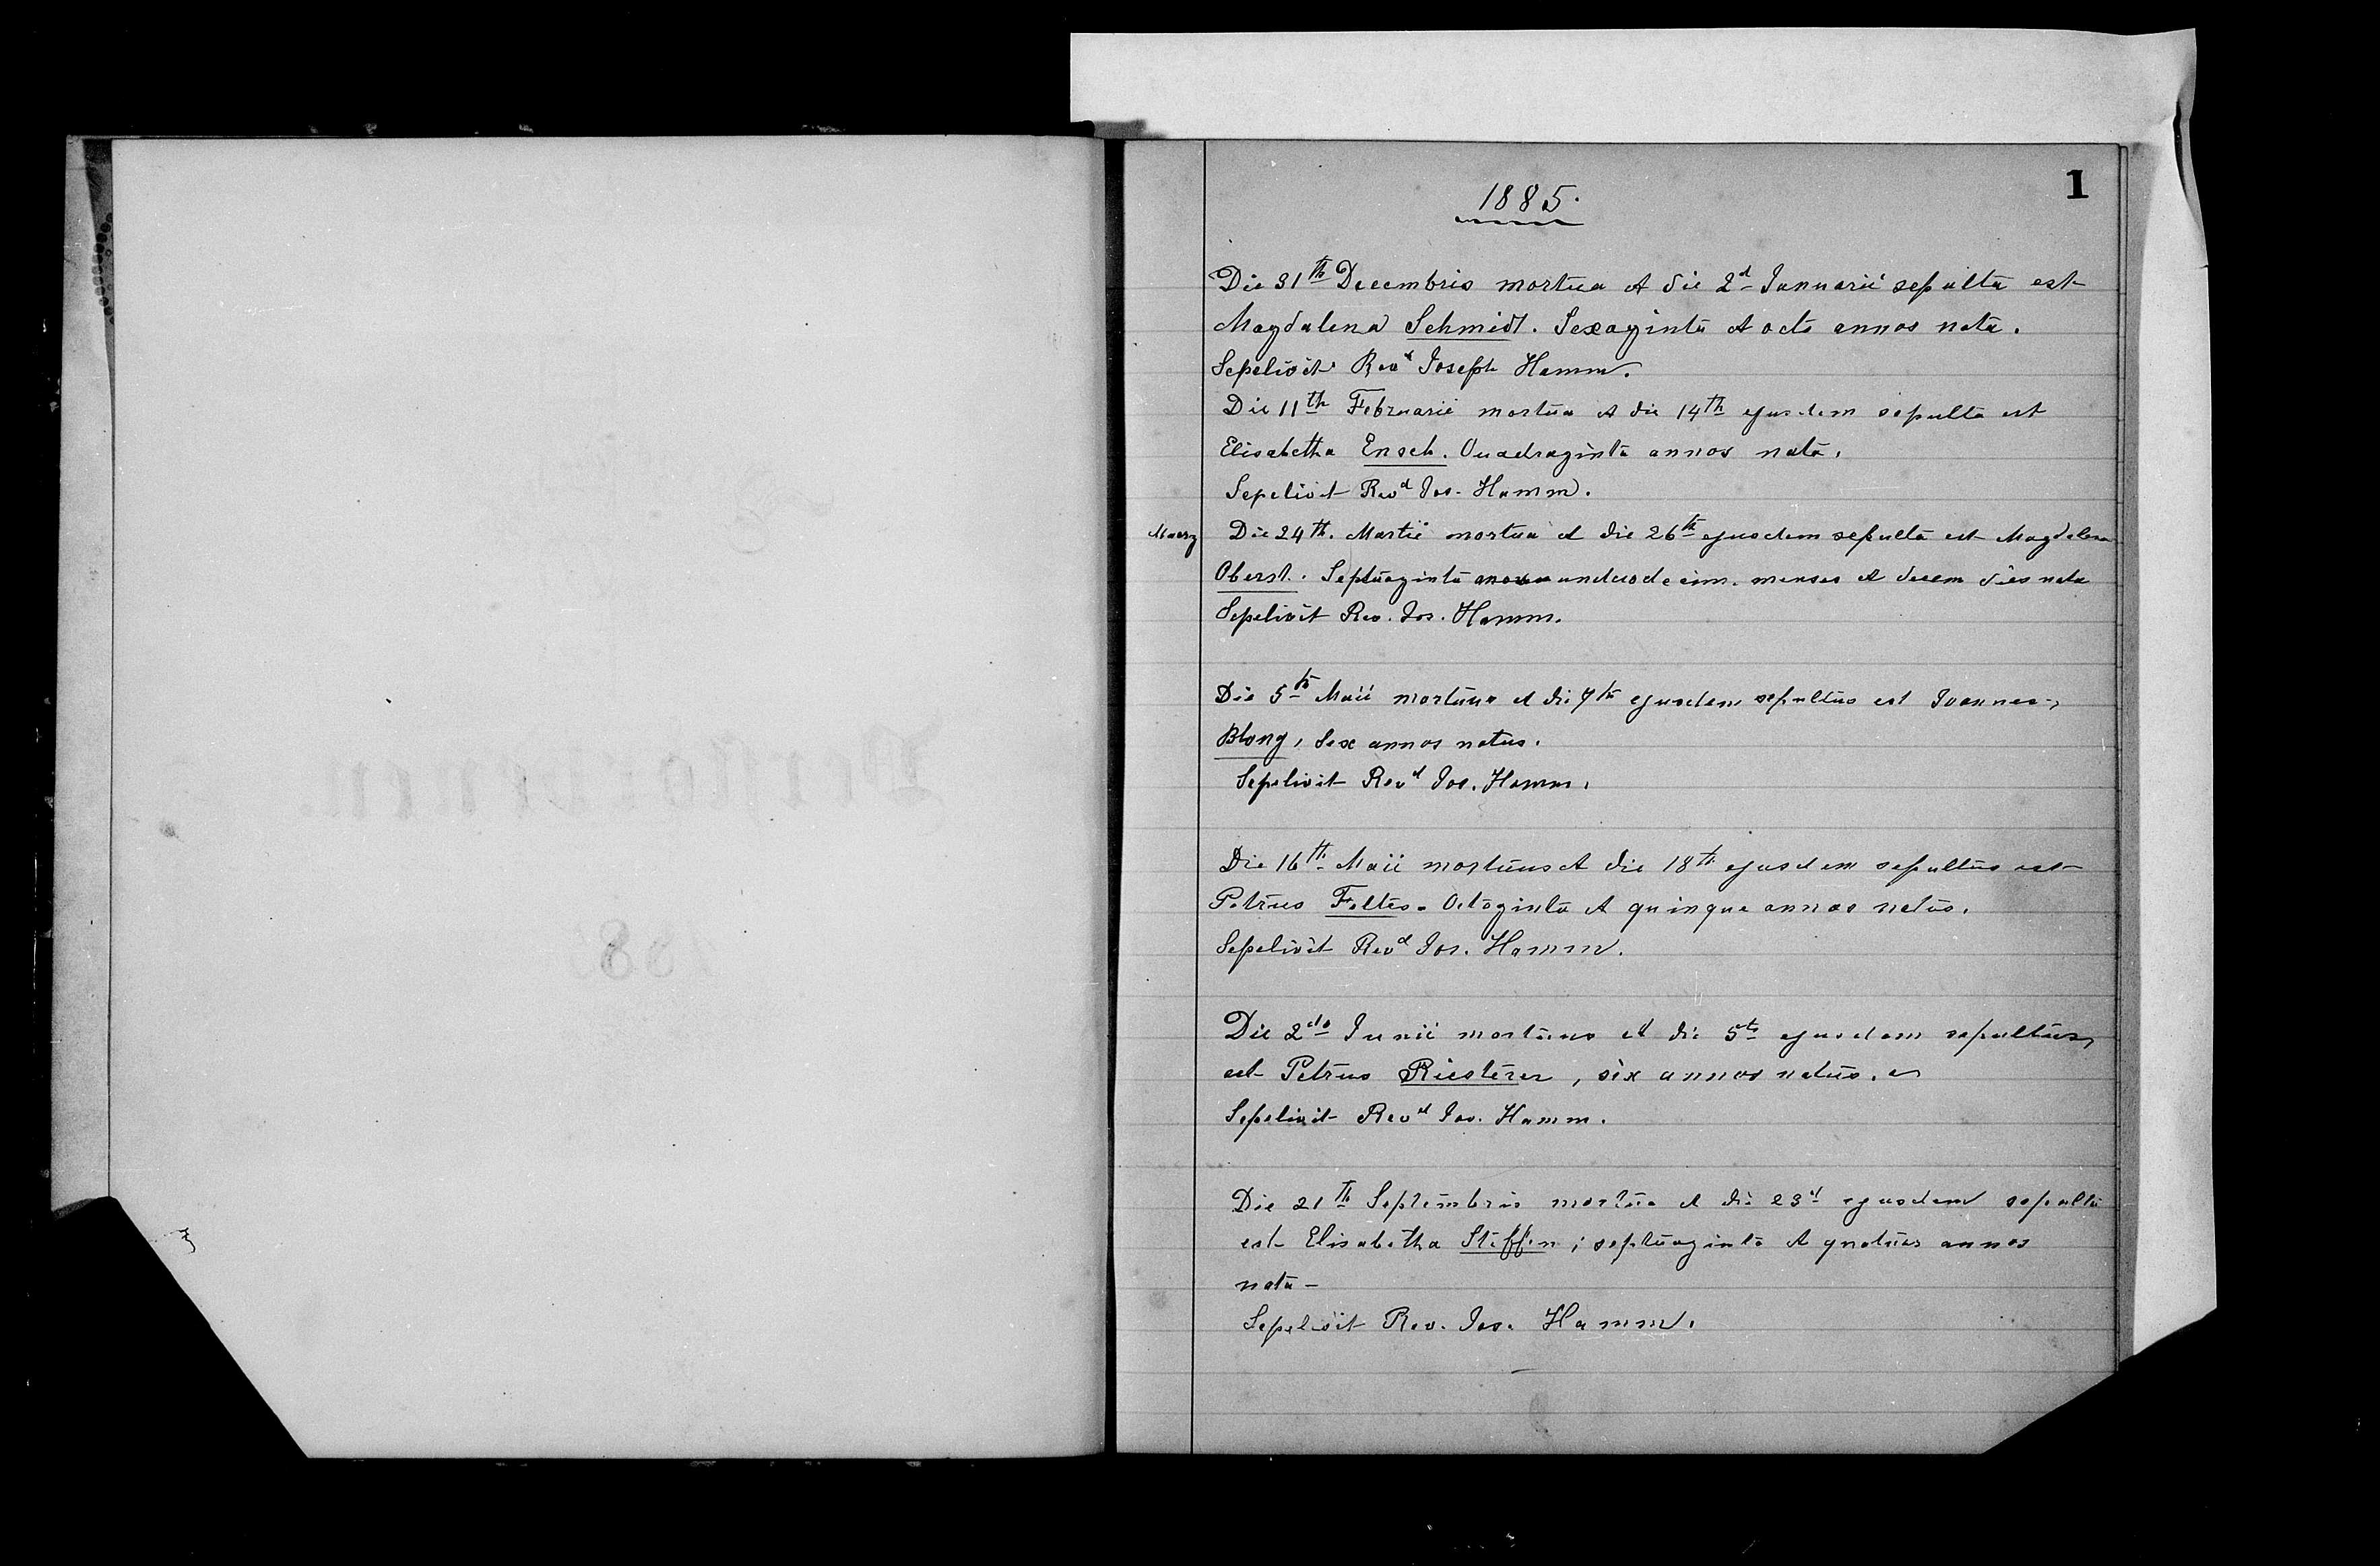 1
1885.
Die 31th Decembris mortua et die 2d Januarii sepulta est
Magdalena Schmidt. Sexaginta et octo annos nata.
Sepelivit Revd Joseph Hamm.
Die 11th Februarii mortua et die 14th ejusdem sepulta est
Elisabetha Ensch. Quadraginta annos nata.
Sepelivit Revd Jos. Hamm.
Maerz Die 24th. Martii mortua et die 26th ejusdem sepulta est Magdalena
Oberst. Septuaginta undecim menses et decem dies nata
Sepelivit Rev. Jos. Hamm.
Die 5th Maii mortuus et die 7th ejusdem sepultus est Joannes
Blong, sex annos natus.
Sepelivit Revd Jos. Hamm.
Die 16th Maii mortuus et die 18th ejusdem sepultus est
Petrus Feltes. Octoginta et quinque annos natus.
Sepelivit Revd Jos. Hamm.
Die 2do Junii mortuus et die 5th ejusdem sepultus
est Petrus Riesterer, six annos natus.
Sepelivit Revd Jos. Hamm.
Die 21th Septembris mortua et die 23d ejusdem sepulta
est Elisabetha Steffen; septuaginta et quatuor annos
nata -
Sepelivit Rev. Jos. Hamm.